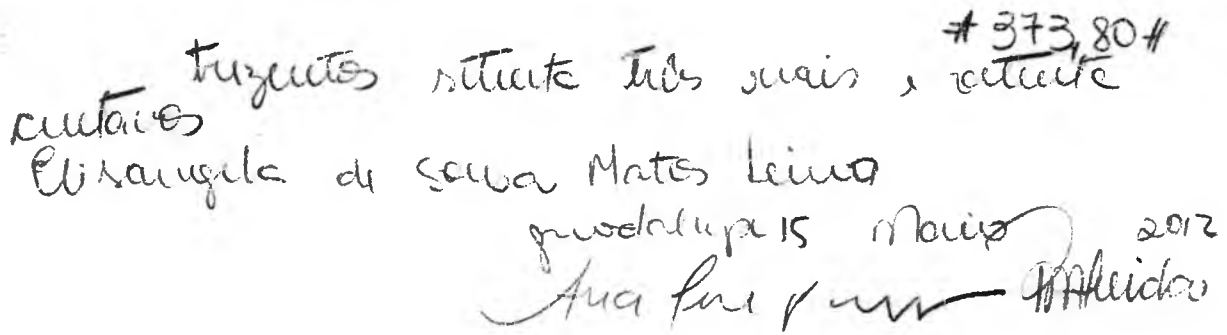 # 373,80 #
trezentos setenta três reais e oitenta
centavos
Elisangela de Sousa Matos Leiva
guadalupe 15 Março 2012
Ana